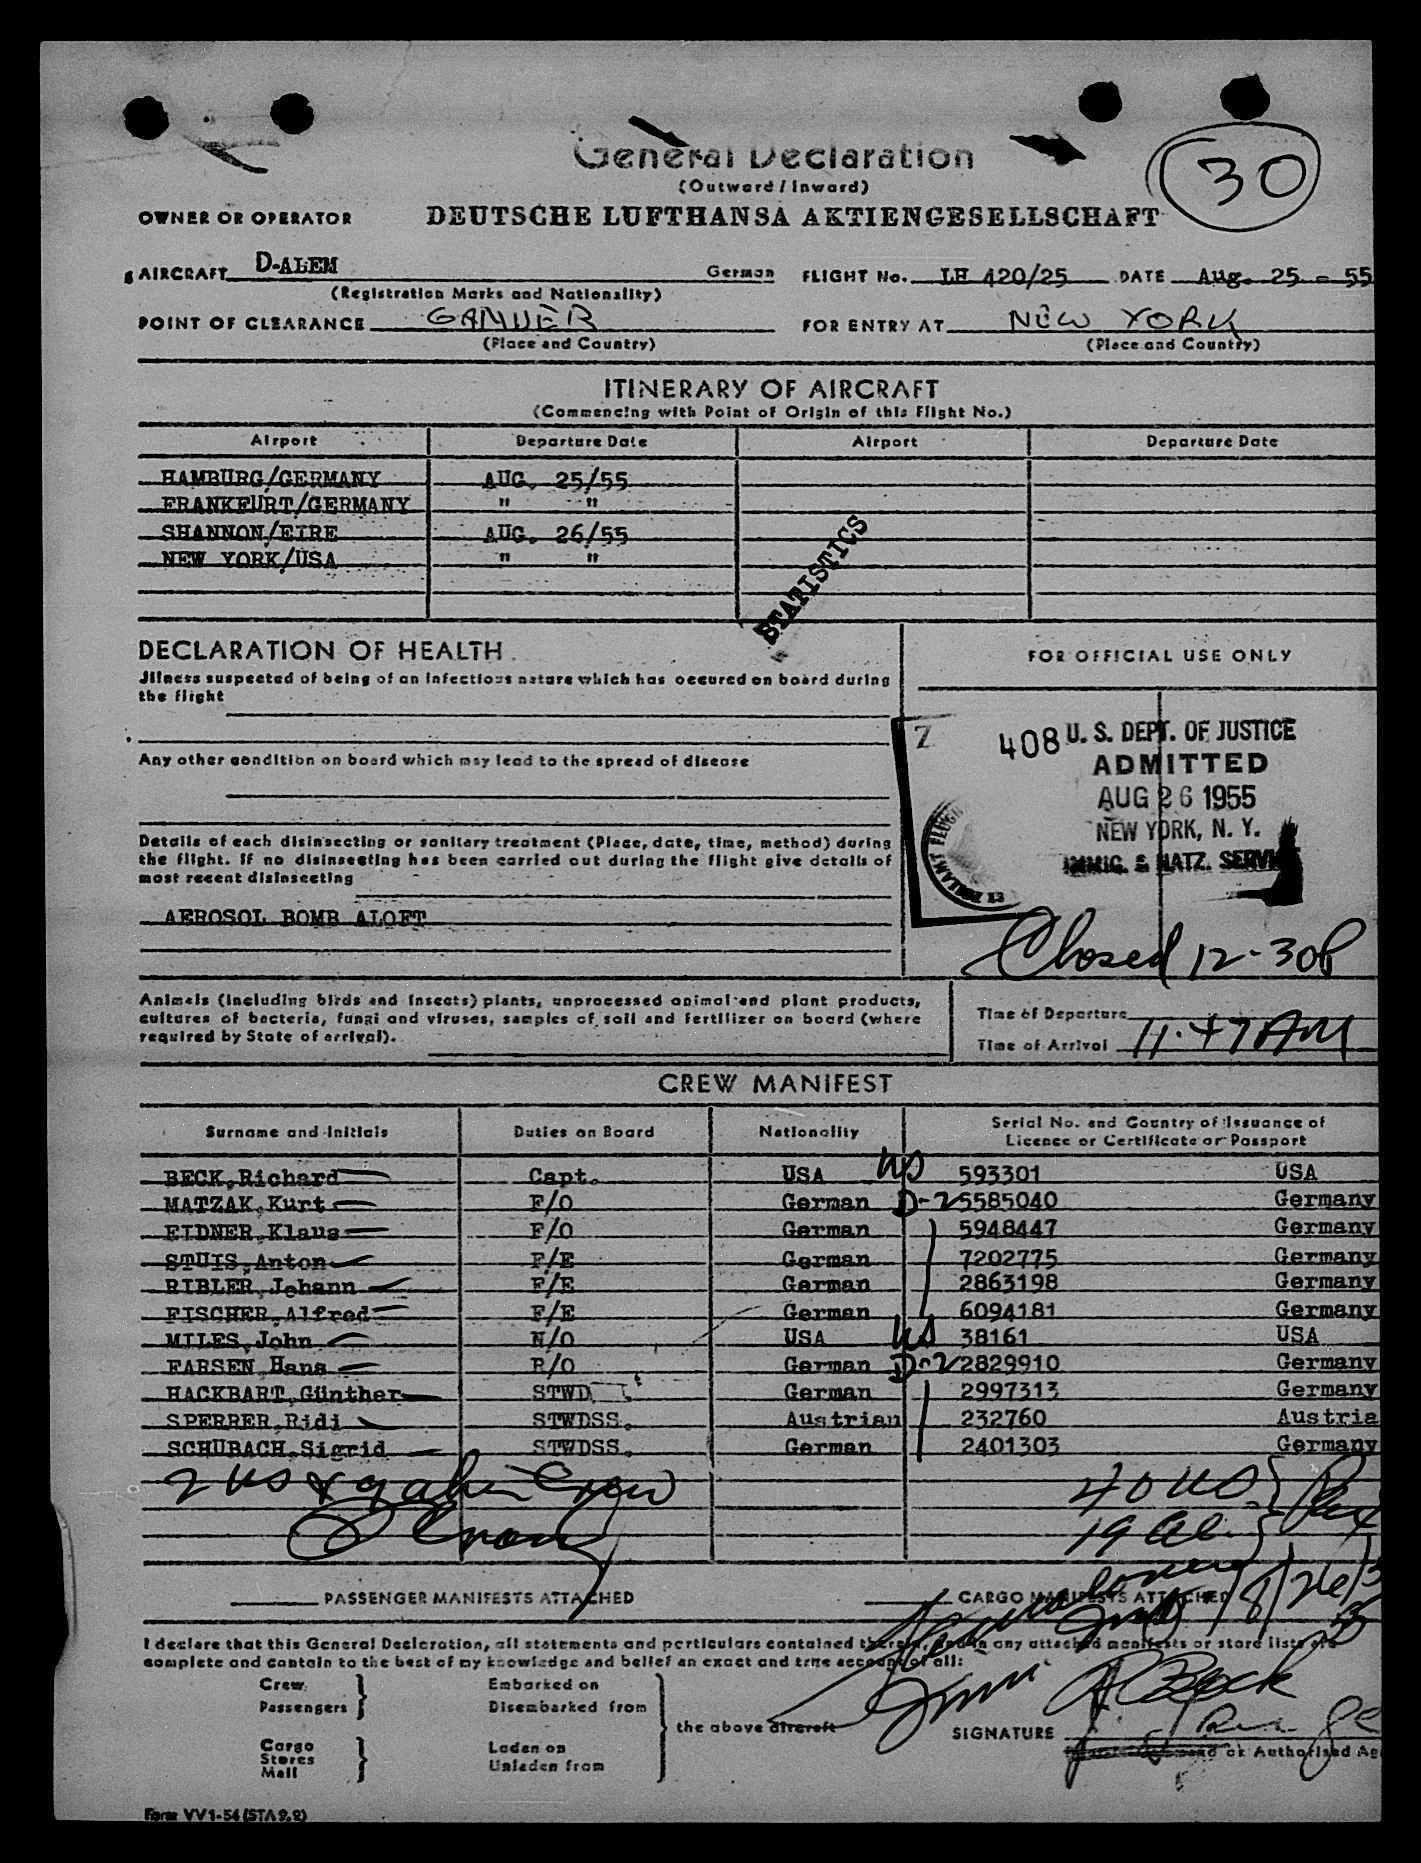 General Declaration
(Outward / Inward)
30
OWNER OR OPERATOR DEUTSCHE LUFTHANSA AKTIENGESELLSCHAFT
AIRCRAFT D-ALEM German FLIGHT No. LH 420/25 DATE Aug. 25 - 55
(Registration Marks and Nationality)
POINT OF CLEARANCE GANDER FOR ENTRY AT NEW YORK
(Place and Country) (Place and Country)
ITINERARY OF AIRCRAFT
(Commencing with Point of Origin of this Flight No.)
Airport Departure Date Airport Departure Date
HAMBURG/GERMANY AUG. 25/55
FRANKFURT/GERMANY " "
SHANNON/EIRE AUG. 26/55
NEW YORK/USA " "
STATISTICS
DECLARATION OF HEALTH
Illness suspected of being of an infectious nature which has occured on board during
the flight
Any other condition on board which may lead to the spread of disease
Details of each disinsecting or sanitary treatment (Place, date, time, method) during
the flight. If no disinsecting has been carried out during the flight give details of
most recent disinsecting
AEROSOL BOMB ALOFT
FOR OFFICIAL USE ONLY
Z
408 U. S. DEPT. OF JUSTICE
ADMITTED
AUG 26 1955
NEW YORK, N. Y.
IMMIG. & NATZ. SERVICE
Closed 12-30P
Animals (including birds and insects) plants, unprocessed animal and plant products,
cultures of bacteria, fungi and viruses, samples of soil and fertilizer on board (where
required by State of arrival).
Time of Departure
Time of Arrival 11.47 AM
CREW MANIFEST
Surname and Initials Duties on Board Nationality Serial No. and Country of Issuance of
Licence or Certificate or Passport
BECK, Richard Capt. USA US 593301 USA
MATZAK, Kurt F/O German D-2 5585040 Germany
EIDNER, Klaus F/O German 5948447 Germany
STUIS, Anton F/E German 7202775 Germany
RIBLER, Johann F/E German 2863198 Germany
FISCHER, Alfred F/E German 6094181 Germany
MILES, John N/O USA US 38161 USA
FARSEN, Hans R/O German D-2 2829910 Germany
HACKBART, Günther STWD German 2997313 Germany
SPERRER, Ridi STWDSS. Austrian 232760 Austria
SCHUBACH, Sigrid STWDSS. German 2401303 Germany
2 US & 9 alien Crew
40 US
19 al. } Pax
8/26/55
PASSENGER MANIFESTS ATTACHED CARGO MANIFESTS ATTACHED
I declare that this General Declaration, all statements and particulars contained therein, and in any attached manifests or store lists are
complete and contain to the best of my knowledge and belief an exact and true account of all:
Crew Embarked on
Passengers Disembarked from
the above aircraft
Cargo Laden on
Stores
Mail Unladen from
SIGNATURE R Beck
or Authorised Ag
Form VV1-54 (STA 9.2)